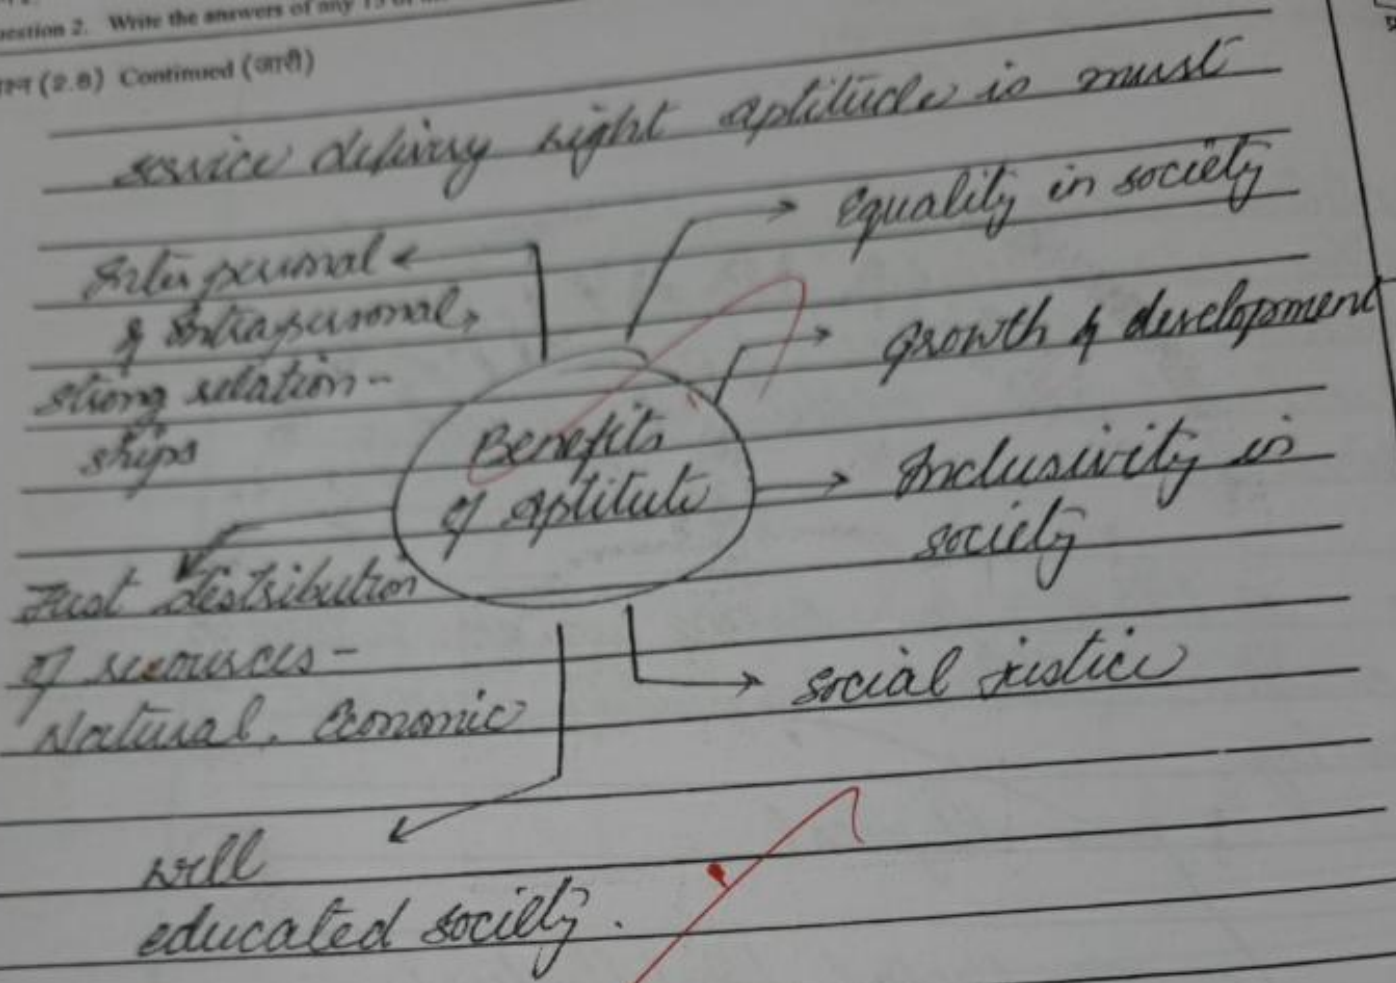 Question 2. Write the answers of any 15 of
प्रश्न (2.8) Continued (जारी)
service delivery right aptitude is must
Equality in society
Inter personal
& Intrapersonal
strong relation-
ships
Growth & development
Benefits
of aptitute
Inclusivity in
society
Just distribution
of resources-
Natural, Economic
social justice
well
educated society.